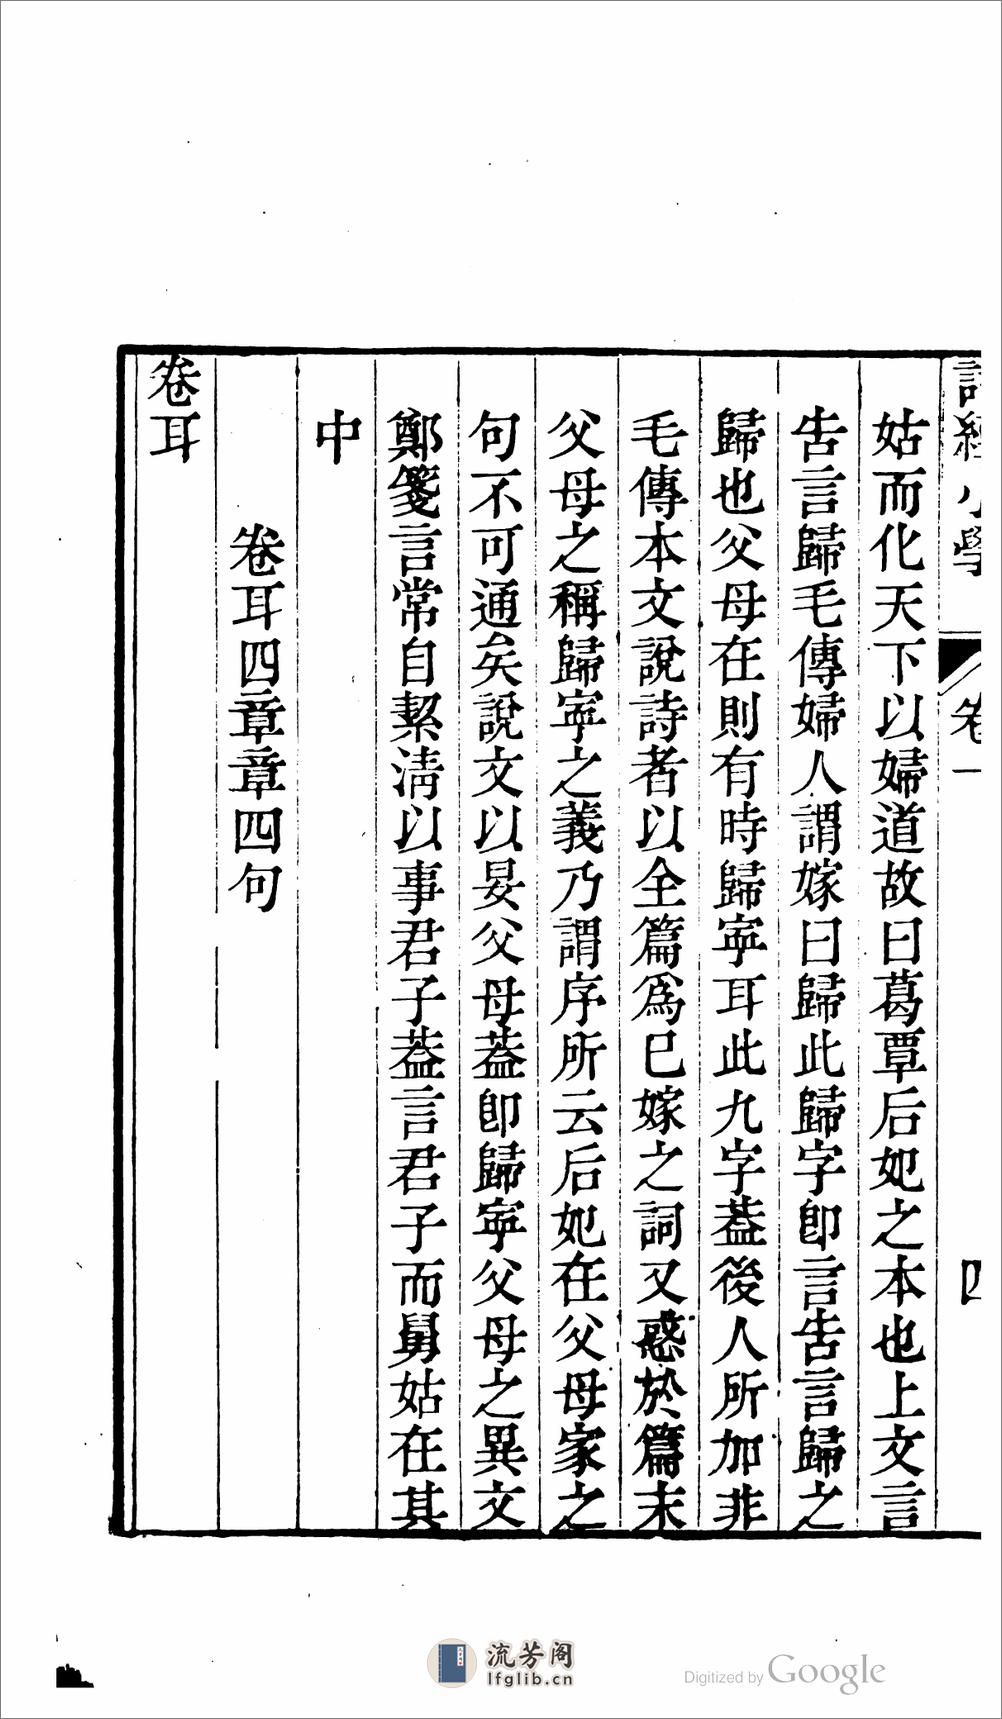 詩經小學 卷一 四
姑而化天下以婦道故曰葛覃后妃之本也上文言
吿言歸毛傳婦人謂嫁曰歸此歸字卽言吿言歸之
歸也父母在則有時歸寧耳此九字葢後人所加非
毛傳本文說詩者以全篇爲已嫁之詞又惑於篇末
父母之稱歸寧之義乃謂序所云后妃在父母家之
句不可通矣說文以晏父母葢卽歸寧父母之異文
鄭箋言常自絜淸以事君子葢言君子而舅姑在其
中
卷耳四章章四句
卷耳
流芳阁
lfglib.cn
Digitized by Google